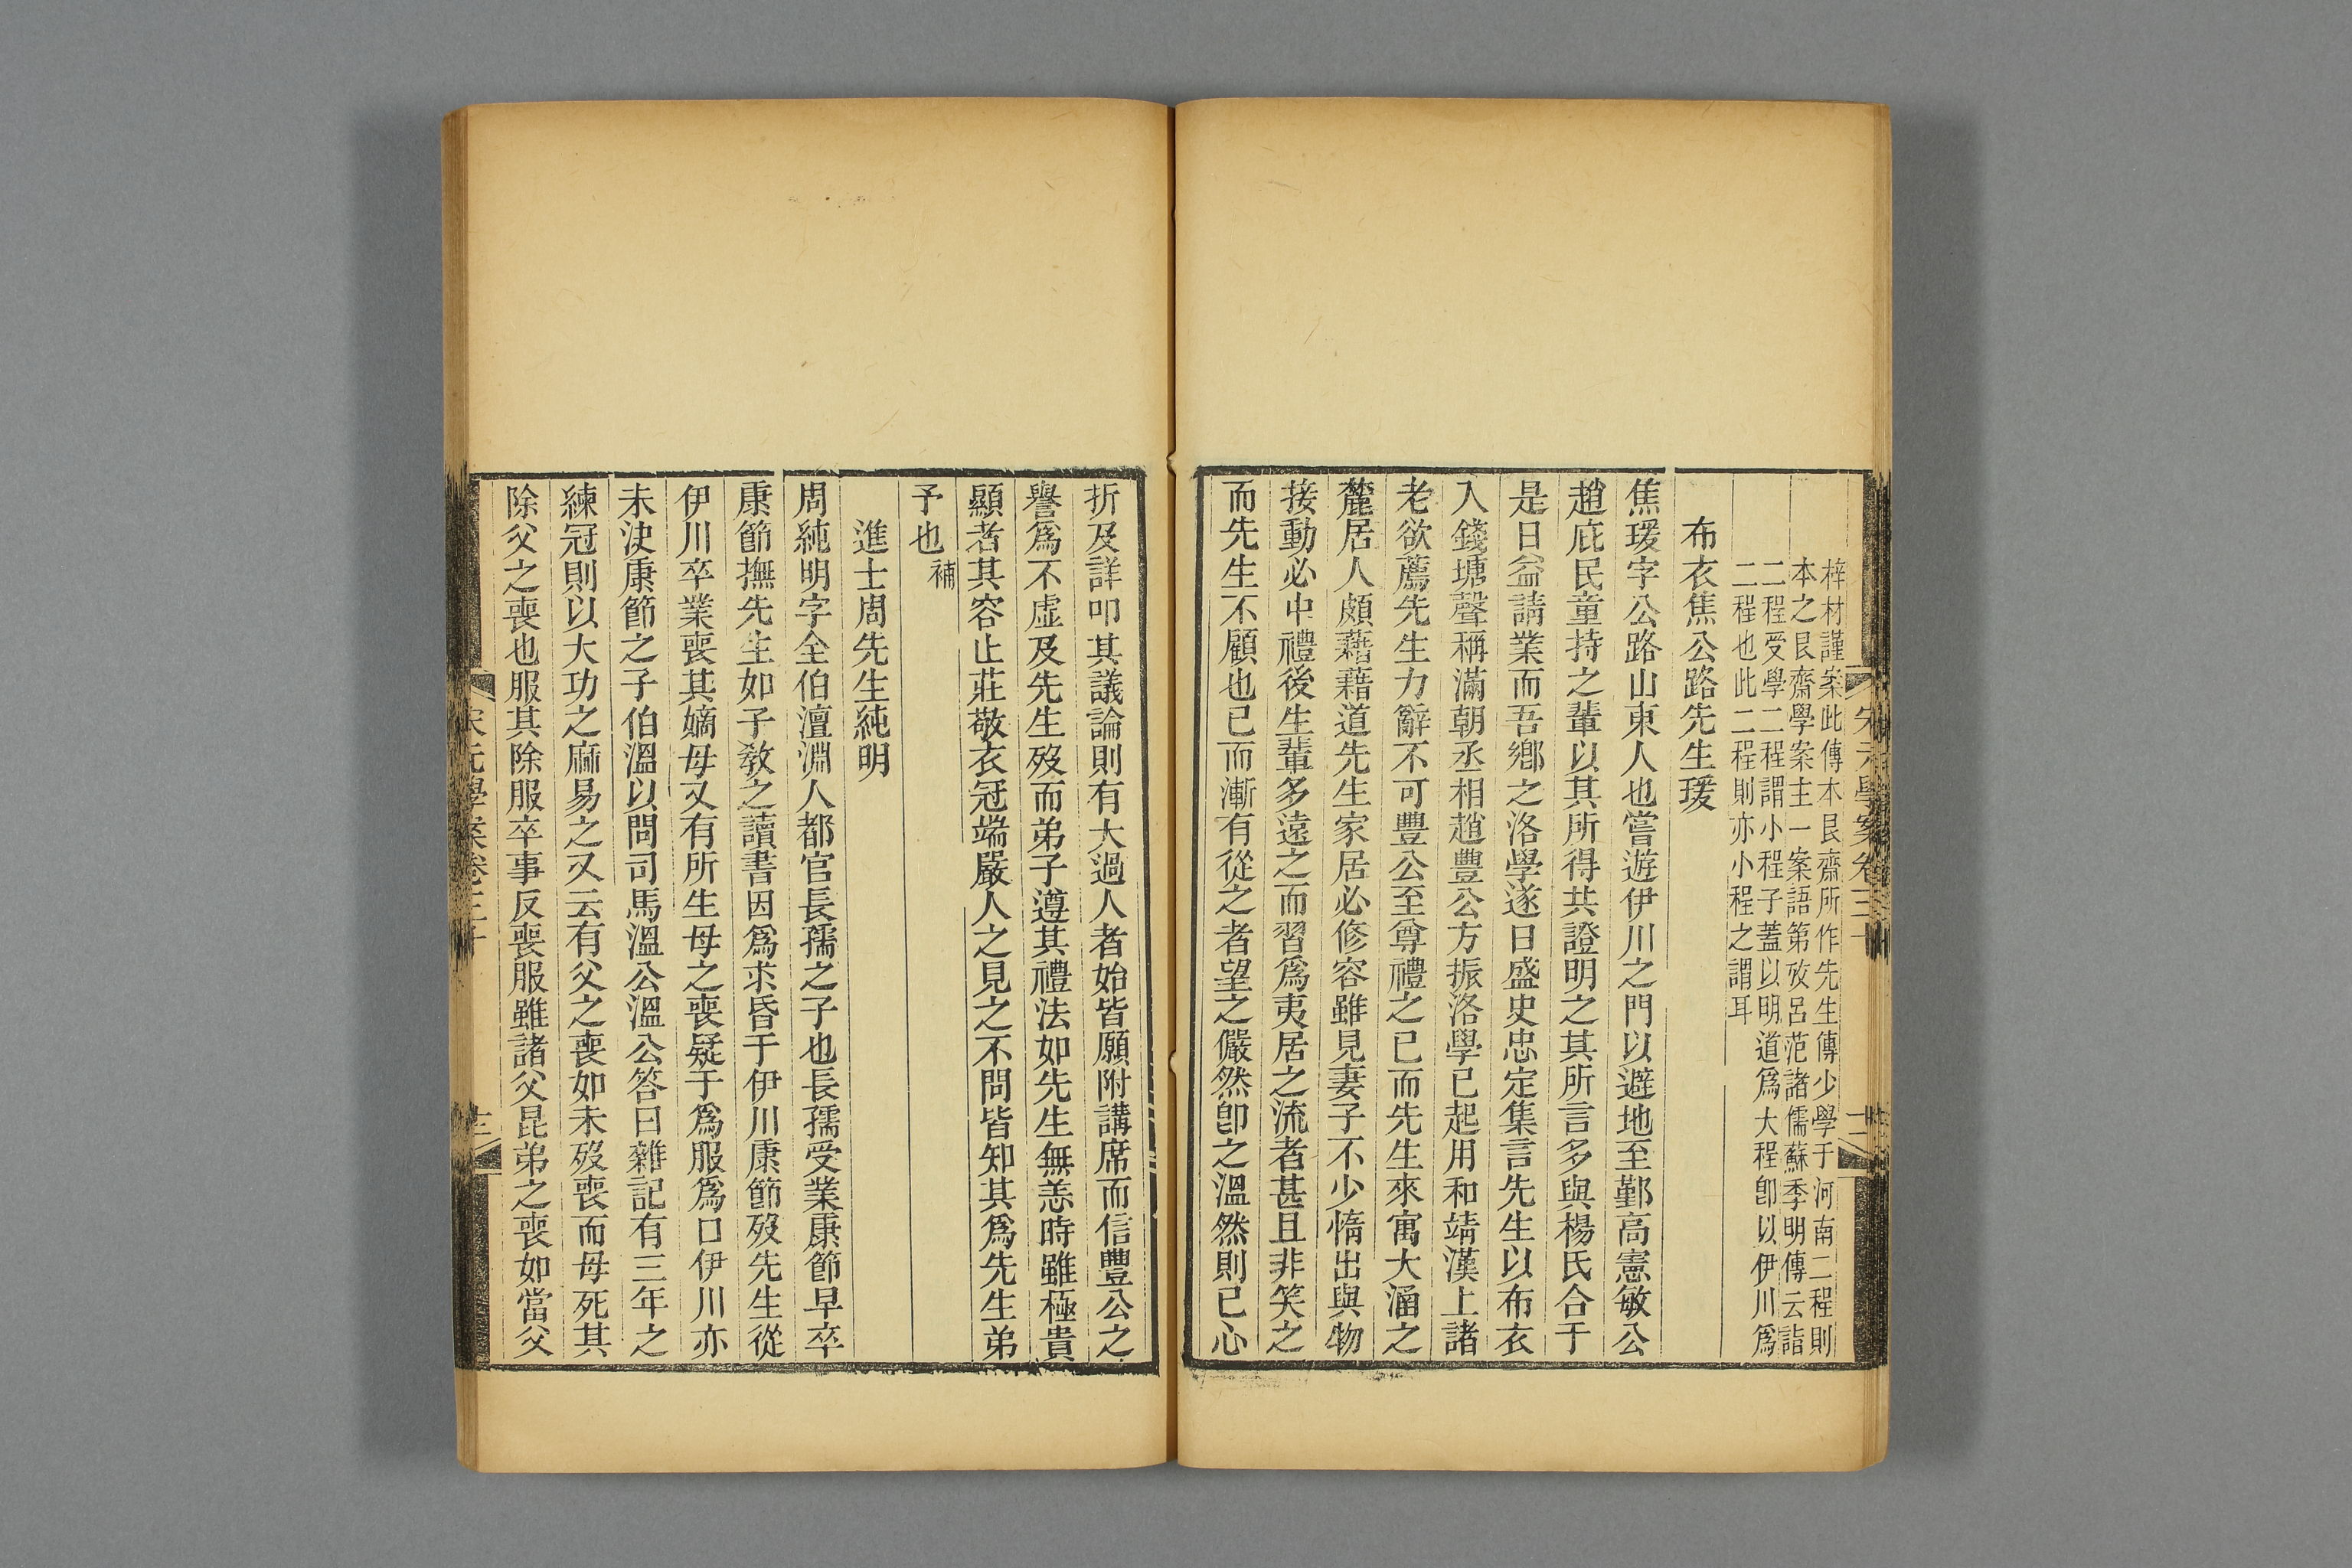 宋元學案卷三十
梓材謹案此傳本艮齋所作先生傳少學于河南二程則
本之艮齋學案主一案語第攷呂范諸儒蘇季明傳云詣
二程受學二程謂小程子蓋以明道爲大程卽以伊川爲
二程也此二程則亦小程之謂耳
布衣焦公路先生瑗
焦瑗字公路山東人也嘗遊伊川之門以避地至鄞高憲敏公
趙庇民童持之輩以其所得共證明之其所言多與楊氏合于
是日益請業而吾鄉之洛學遂日盛史忠定集言先生以布衣
入錢塘聲稱滿朝丞相趙豐公方振洛學已起用和靖漢上諸
老欲薦先生力辭不可豐公至尊禮之已而先生來寓大涵之
麓居人頗藉藉道先生家居必修容雖見妻子不少惰出與物
接動必中禮後生輩多遠之而習爲夷居之流者甚且非笑之
而先生不顧也已而漸有從之者望之儼然卽之溫然則已心
折及詳叩其議論則有大過人者始皆願附講席而信豐公之
譽爲不虛及先生歿而弟子遵其禮法如先生無恙時雖極貴
顯者其容止莊敬衣冠端嚴人之見之不問皆知其爲先生弟
予也補
進士周先生純明
周純明字全伯澶淵人都官長孺之子也長孺受業康節早卒
康節撫先生如子敎之讀書因爲求昏于伊川康節歿先生從
伊川卒業喪其嫡母又有所生母之喪疑于爲服爲口伊川亦
未決康節之子伯溫以問司馬溫公溫公答曰雜記有三年之
練冠則以大功之麻易之又云有父之喪如未歿喪而母死其
除父之喪也服其除服卒事反喪服雖諸父昆弟之喪如當父
宋元學案卷三十